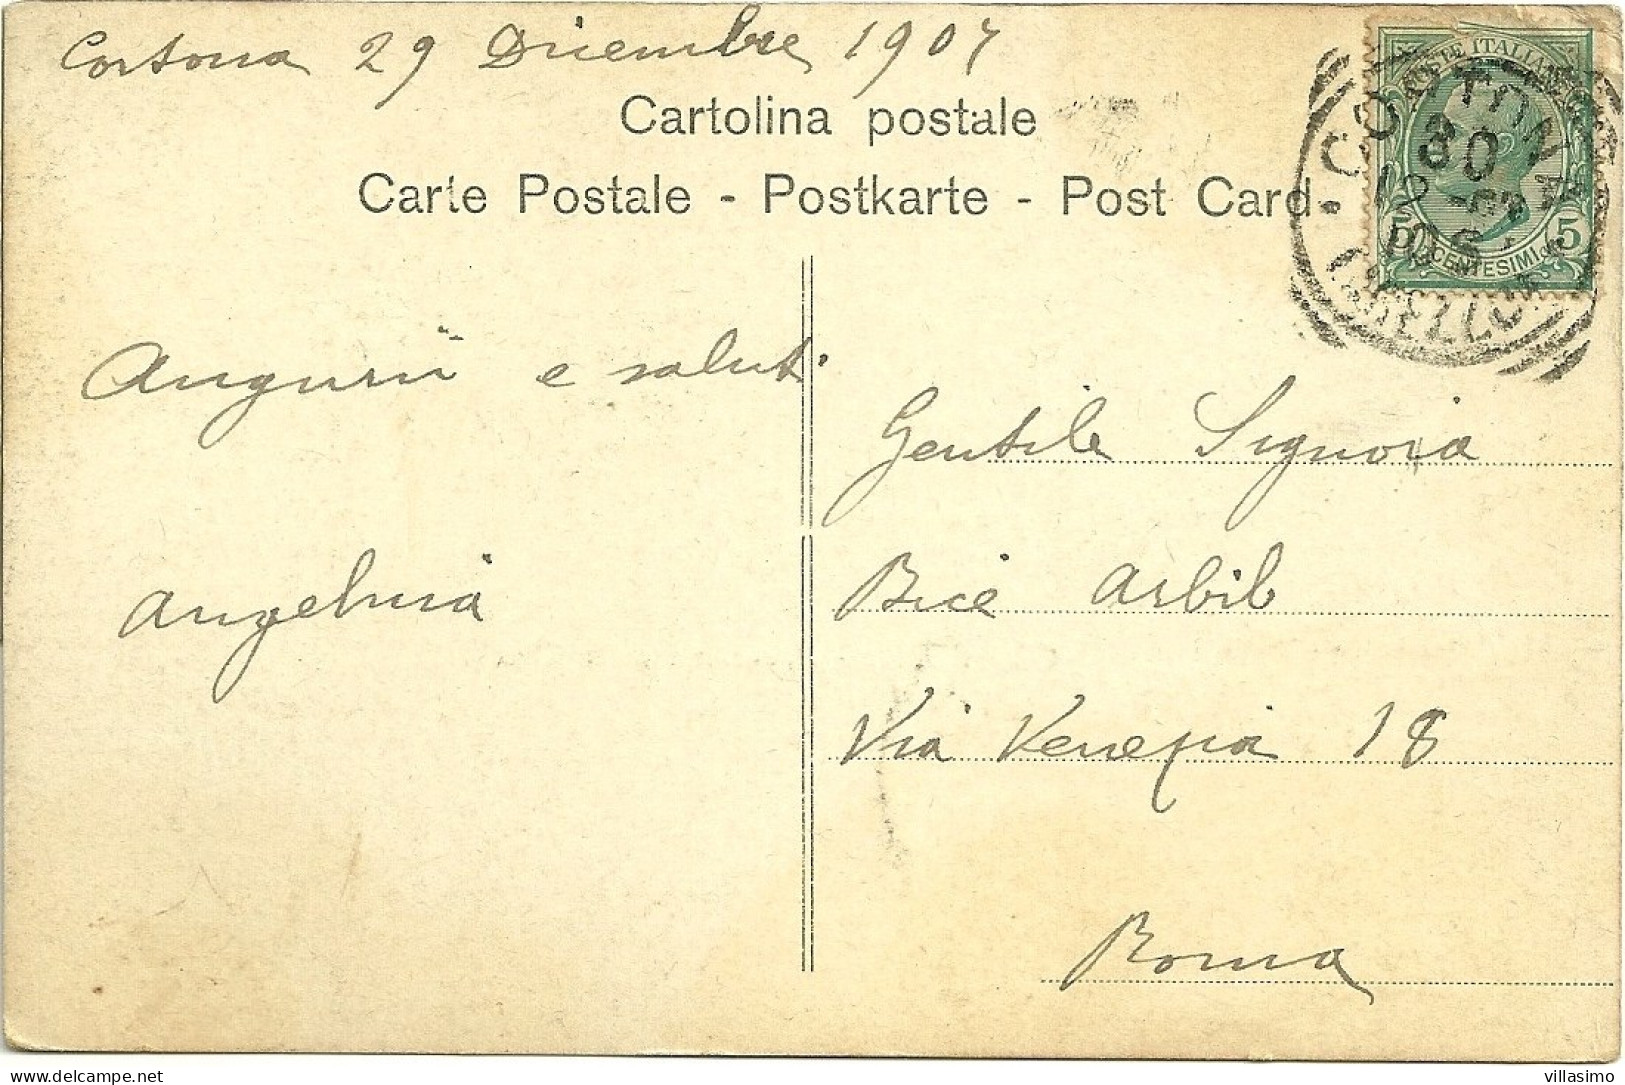 Cortona 29 Dicembre 1907
Cartolina postale
Carte Postale - Postkarte - Post Card
POSTE ITALIANE
5 CENTESIMI 5
CORTONA
30
12 - 07
10 S
(AREZZO)
Augurii e saluti
Angelina
Gentile Signora
Bice Arbib
Via Venezia 18
Roma
villasimo